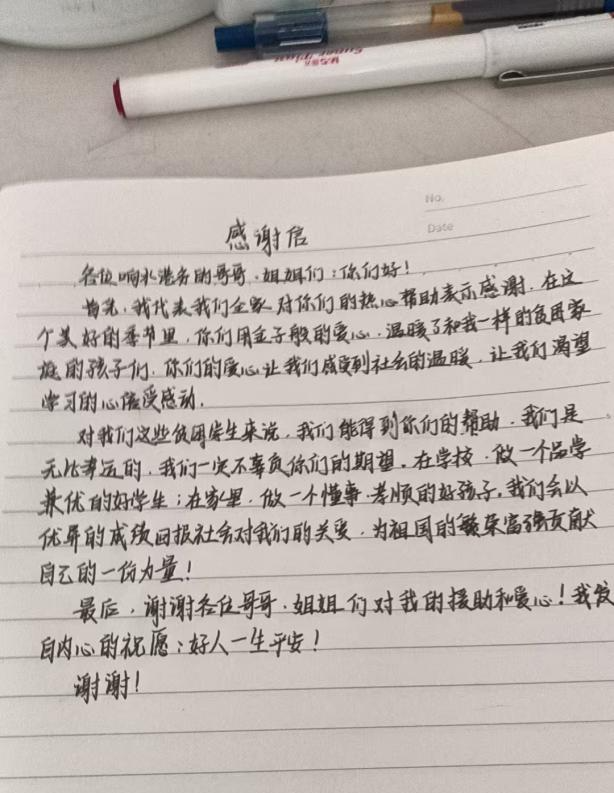 No.
Date
感谢信
各位响水港务的哥哥、姐姐们：你们好！
首先，我代表我们全家对你们的热心帮助表示感谢。在这
个美好的季节里，你们用金子般的爱心，温暖了和我一样的贫困家
庭的孩子们，你们的爱心让我们感受到社会的温暖，让我们渴望
学习的心倍受感动。
对我们这些贫困学生来说，我们能得到你们的帮助，我们是
无比幸运的，我们一定不辜负你们的期望。在学校，做一个品学
兼优的好学生；在家里，做一个懂事、孝顺的好孩子。我们会以
优异的成绩回报社会对我们的关爱，为祖国的繁荣富强贡献
自己的一份力量！
最后，谢谢各位哥哥、姐姐们对我的援助和爱心！我发
自内心的祝愿：好人一生平安！
谢谢！